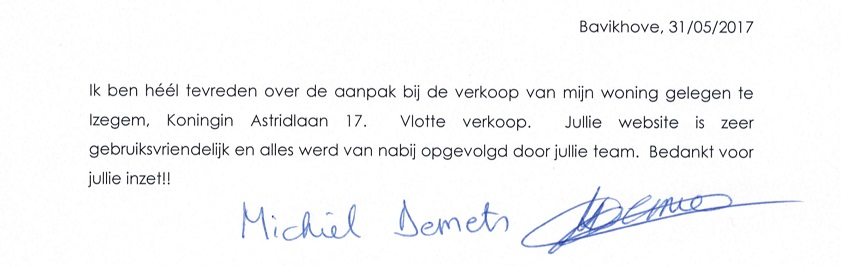 Bavikhove, 31/05/2017
Ik ben héél tevreden over de aanpak bij de verkoop van mijn woning gelegen te
Izegem, Koningin Astridlaan 17. Vlotte verkoop. Jullie website is zeer
gebruiksvriendelijk en alles werd van nabij opgevolgd door jullie team. Bedankt voor
jullie inzet!!
Michiel Demets